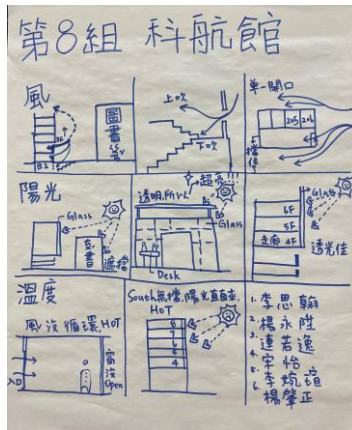 第8組 科航館
風
3F
B3
圖書館
上吹
下吹
單一開口
205 206
擋住
陽光
Glass
圖書
遮擋
透明,所以
超亮
Glass
Desk
Glass
6F
5F
走廊 4F
透光佳
溫度
風沒循環HOT
入口
窗沒Open
South無擋,陽光直直走
HOT
8
7
6
5
4
1. 李思翰
2. 楊永陞
3. 連若逸
4. 宋怡
5. 李婉瑄
6. 楊肇正